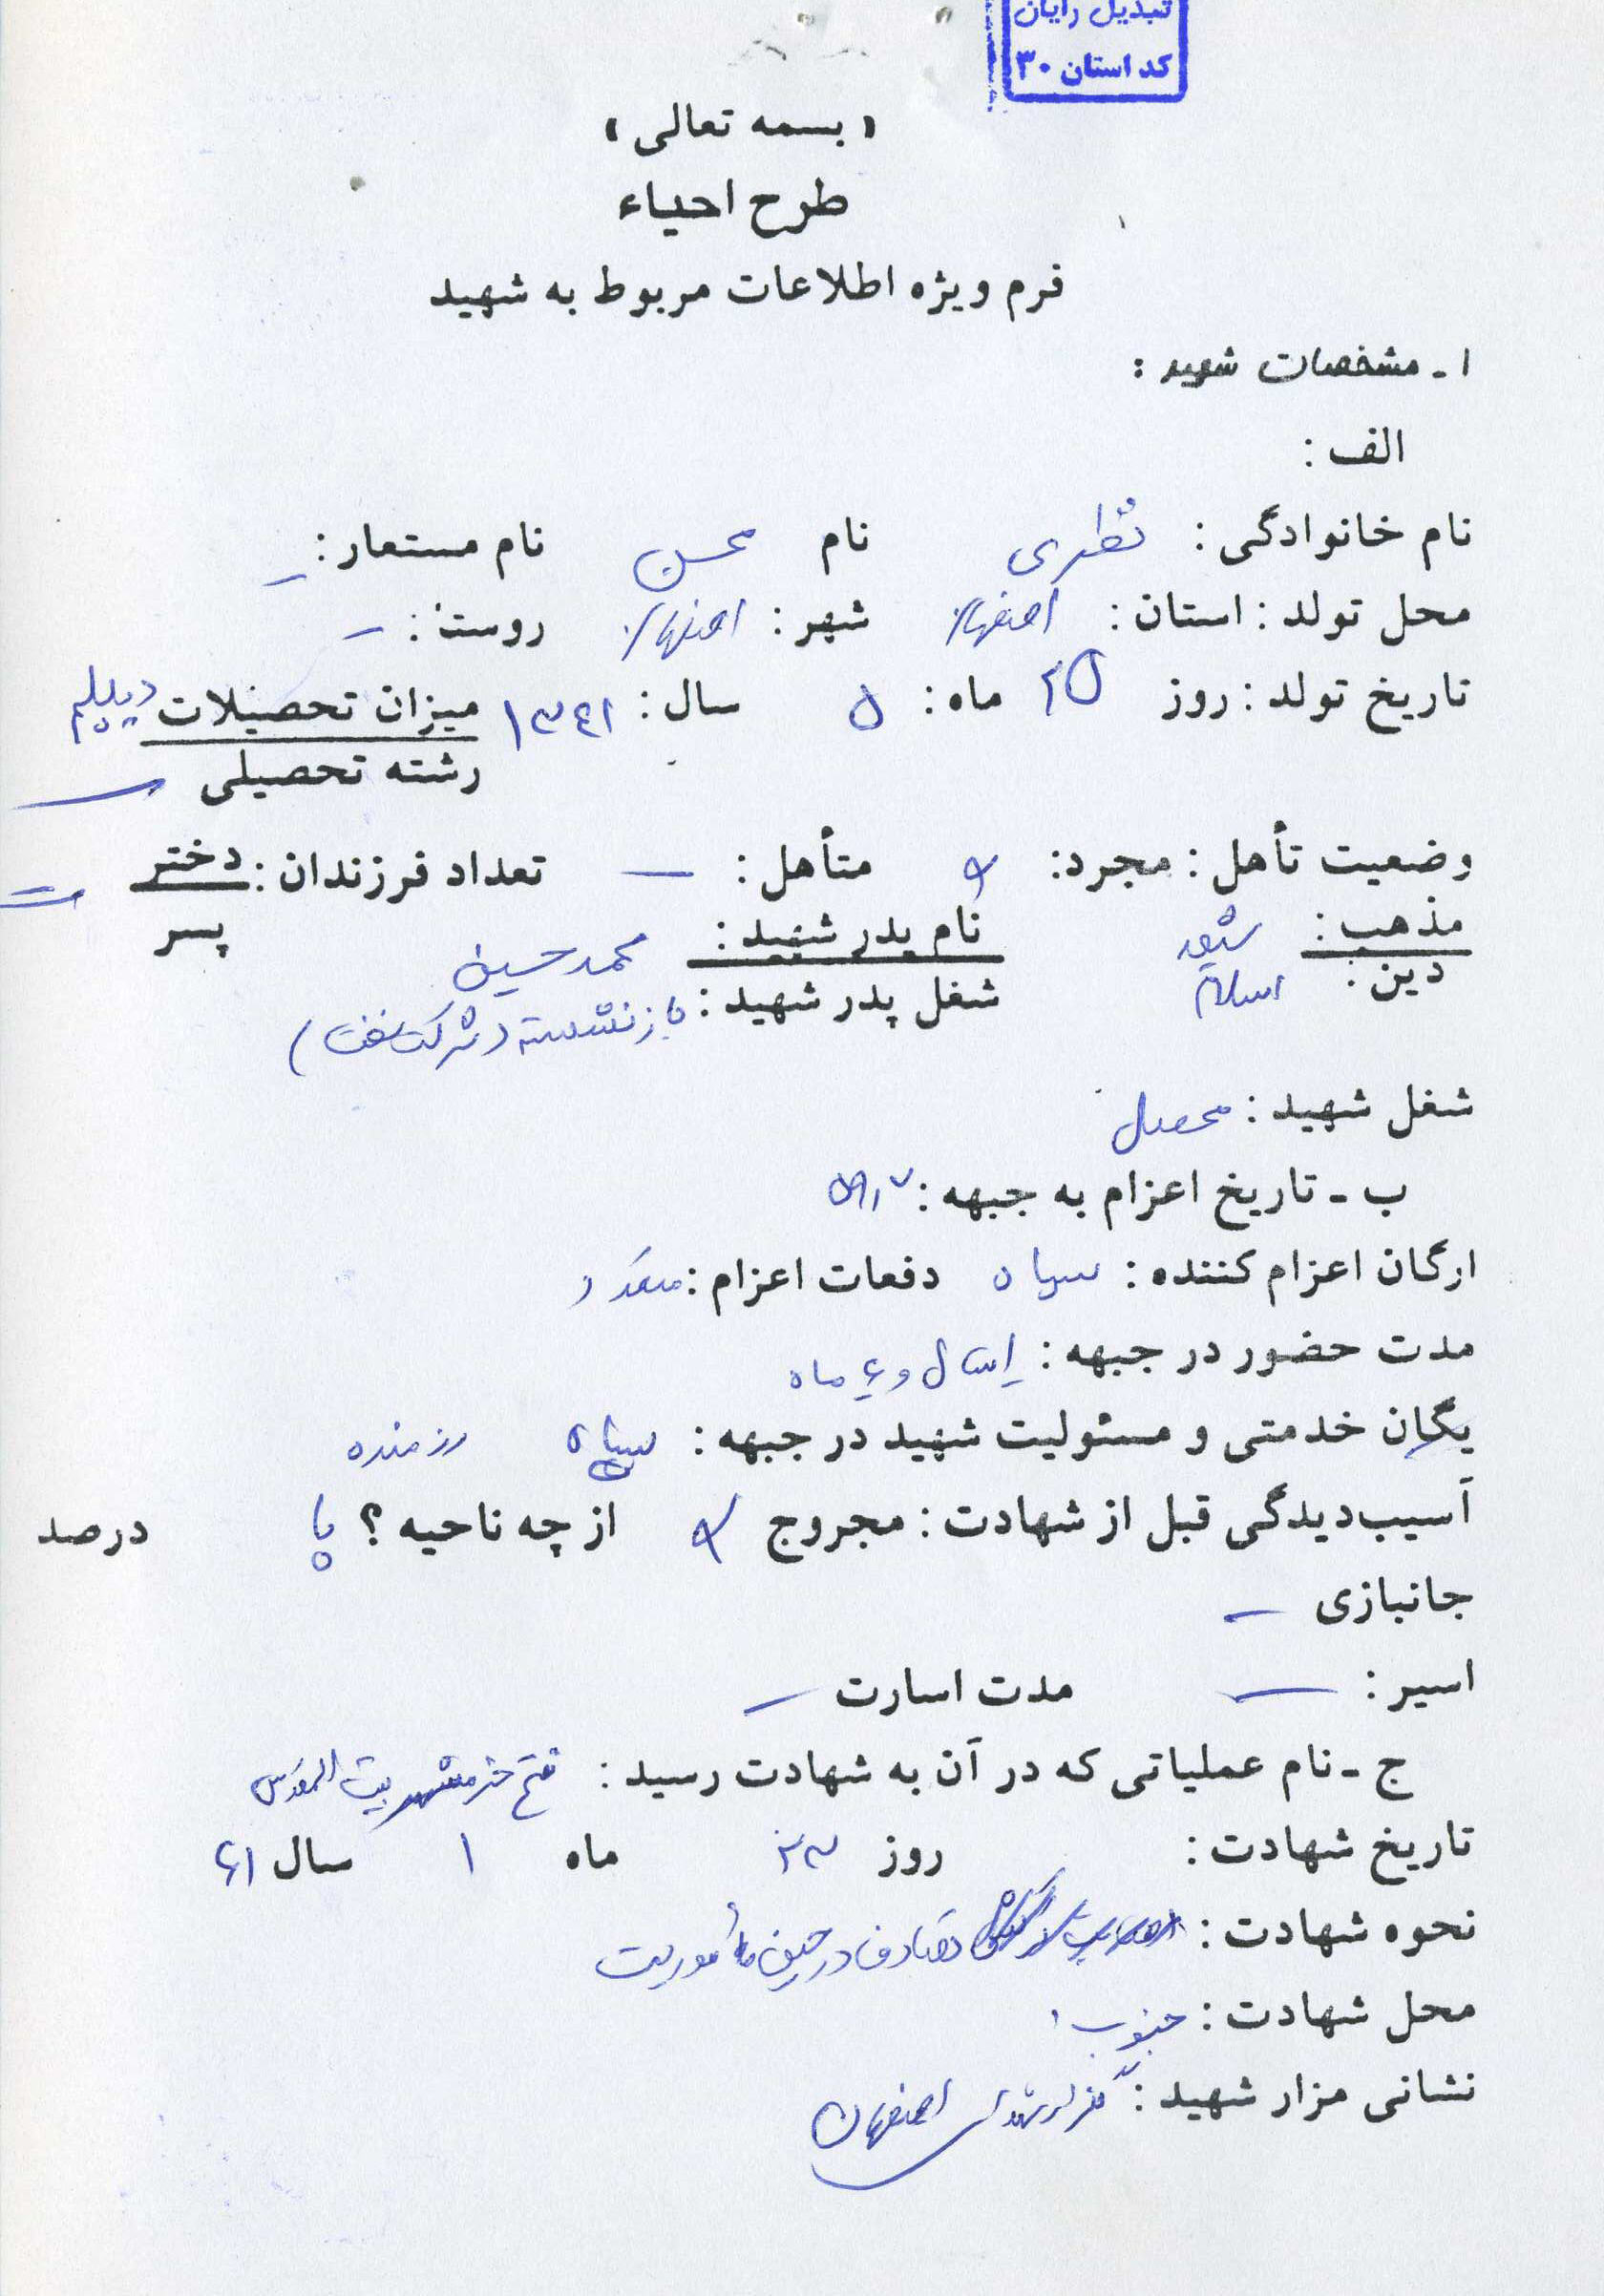 تبدیل رایان
کد استان ۳۰
« بسمه تعالی »
طرح احیاء
فرم ویژه اطلاعات مربوط به شهید
۱ ـ مشخصات شهید :
الف :
نام خانوادگی : نظری نام محسن نام مستعار : ـ
محل تولد : استان : اصفهان شهر : اصفهان روستا : ـ
تاریخ تولد : روز ۲۵ ماه : ۵ سال : ۱۳۴۱ میزان تحصیلات دیپلم
رشته تحصیلی ـ
وضعیت تأهل : مجرد : متأهل : ـ تعداد فرزندان : دختر
پسر
مذهب : شیعه نام پدر شهید : محمد حسین
دین : اسلام شغل پدر شهید : بازنشسته (شرکت نفت)
شغل شهید : محصل
ب ـ تاریخ اعزام به جبهه :
ارگان اعزام کننده : سپاه دفعات اعزام : متعدد
مدت حضور در جبهه : ۱ سال و ۶ ماه
یگان خدمتی و مسئولیت شهید در جبهه : سپاه رزمنده
آسیب‌دیدگی قبل از شهادت : مجروح از چه ناحیه ؟ پا درصد
جانبازی ـ
اسیر : ـ مدت اسارت ـ
ج ـ نام عملیاتی که در آن به شهادت رسید : فتح خرمشهر بیت المقدس
تاریخ شهادت : روز ۲۳ ماه ۱ سال ۶۱
نحوه شهادت : تصادف در حین مأموریت
محل شهادت : جنوب
نشانی مزار شهید : گلزار شهدای اصفهان